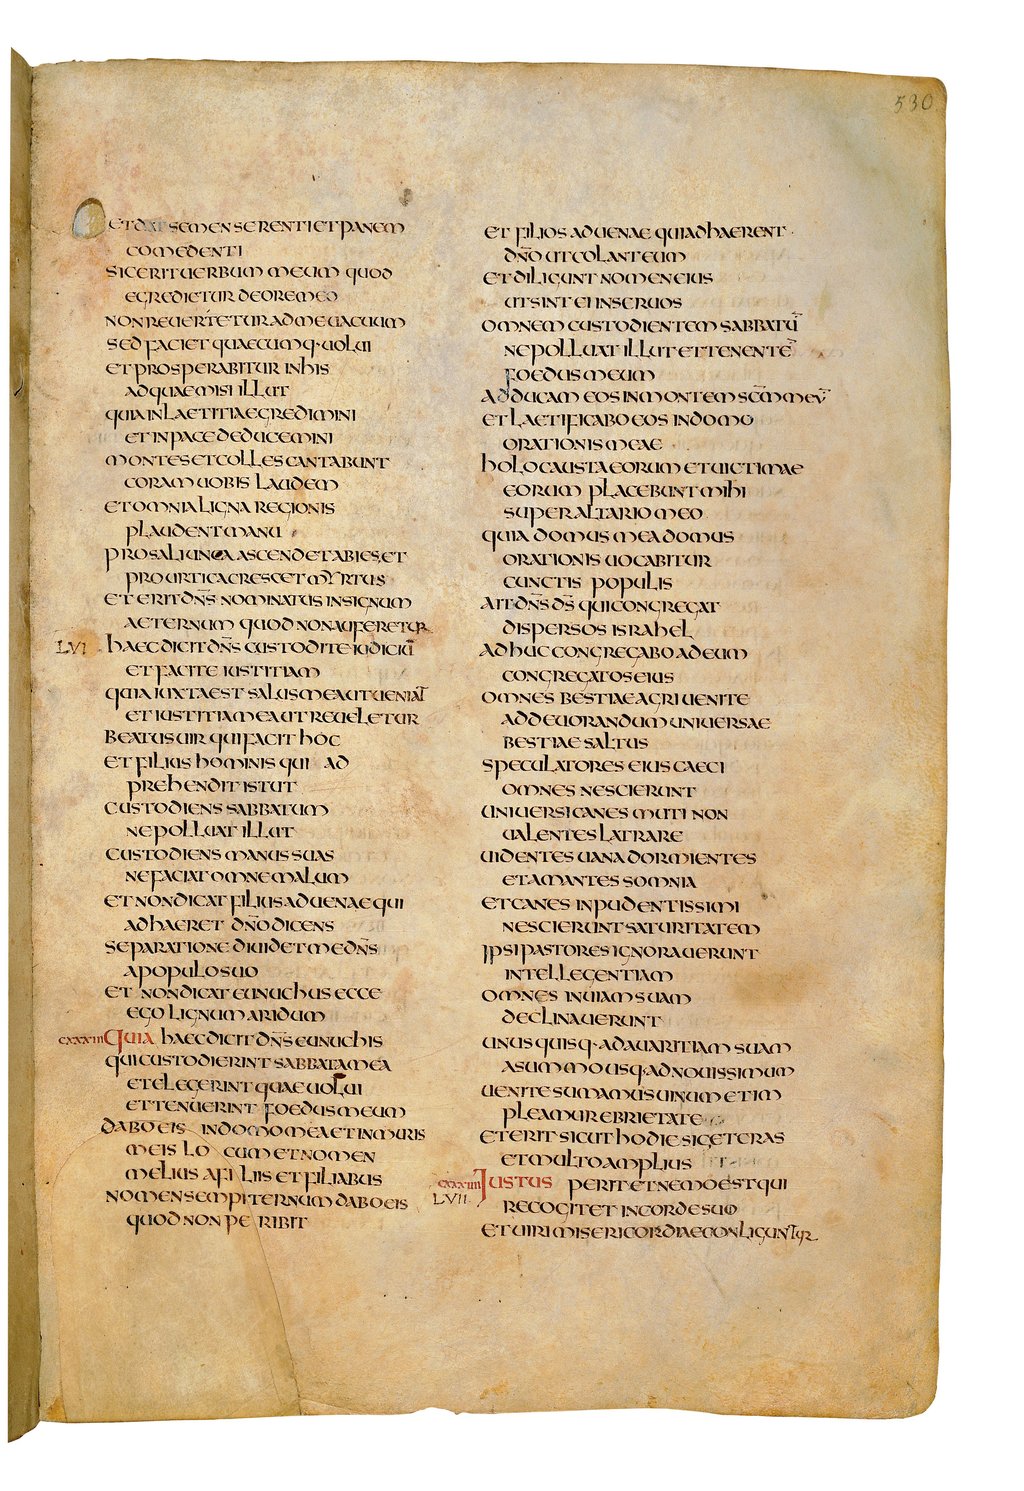 530
et dat semen serenti et panem
comedenti
sic erit uerbum meum quod
egredietur de ore meo
non reuertetur ad me uacuum
sed faciet quaecumq· uolui
et prosperabitur in his
ad quae misi illut
quia in laetitia egredimini
et in pace deducemini
montes et colles cantabunt
coram uobis laudem
et omnia ligna regionis
plaudent manu
pro saliunca ascendet abies, et
pro urtica crescet myrtus
et erit dn̄s nominatus in signum
aeternum quod non auferetur
LVI haec dicit dn̄s custodite iudiciū
et facite iustitiam
quia iuxta est salus mea ut ueniat
et iustitia mea ut reueletur
beatus uir qui facit hoc
et filius hominis qui ad
prehendit istut
custodiens sabbatum
ne polluat illut
custodiens manus suas
ne faciat omne malum
et non dicat filius aduenae qui
adhaeret dn̄o dicens
separatione diuidet me dn̄s
a populo suo
et non dicat eunuchus ecce
ego lignum aridum
cxxxiii Quia haec dicit dn̄s eunuchis
qui custodierint sabbata mea
et elegerint quae uolui
et tenuerint foedus meum
dabo eis in domo mea et in muris
meis lo cum et nomen
melius a fi liis et filiabus
nomen sempiternum dabo eis
quod non pe ribit
et filios aduenae qui adhaerent
dn̄o ut colant eum
et diligunt nomen eius
ut sint ei in seruos
omnem custodientem sabbatū
ne polluat illut et tenentē
foedus meum
adducam eos in montem sc̄m meū
et laetificabo eos in domo
orationis meae
holocausta eorum et uictimae
eorum placebunt mihi
super altario meo
quia domus mea domus
orationis uocabitur
cunctis populis
ait dn̄s ds̄ qui congregat
dispersos israhel
adhuc congregabo ad eum
congregatos eius
omnes bestiae agri uenite
ad deuorandum uniuersae
bestiae saltus
speculatores eius caeci
omnes nescierunt
uniuersi canes muti non
ualentes latrare
uidentes uana dormientes
et amantes somnia
et canes inpudentissimi
nescierunt saturitatem
ipsi pastores ignorauerunt
intellegentiam
omnes in uiam suam
declinauerunt
unusquisq· ad auaritiam suam
a summo usq· ad nouissimum
uenite sumamus uinum et im
pleamur ebrietate
et erit sicut hodie sic et cras
et multo amplius
cxxxiiii Iustus perit et nemo est qui
LVII recogitet in corde suo
et uiri misericordiae conliguntur